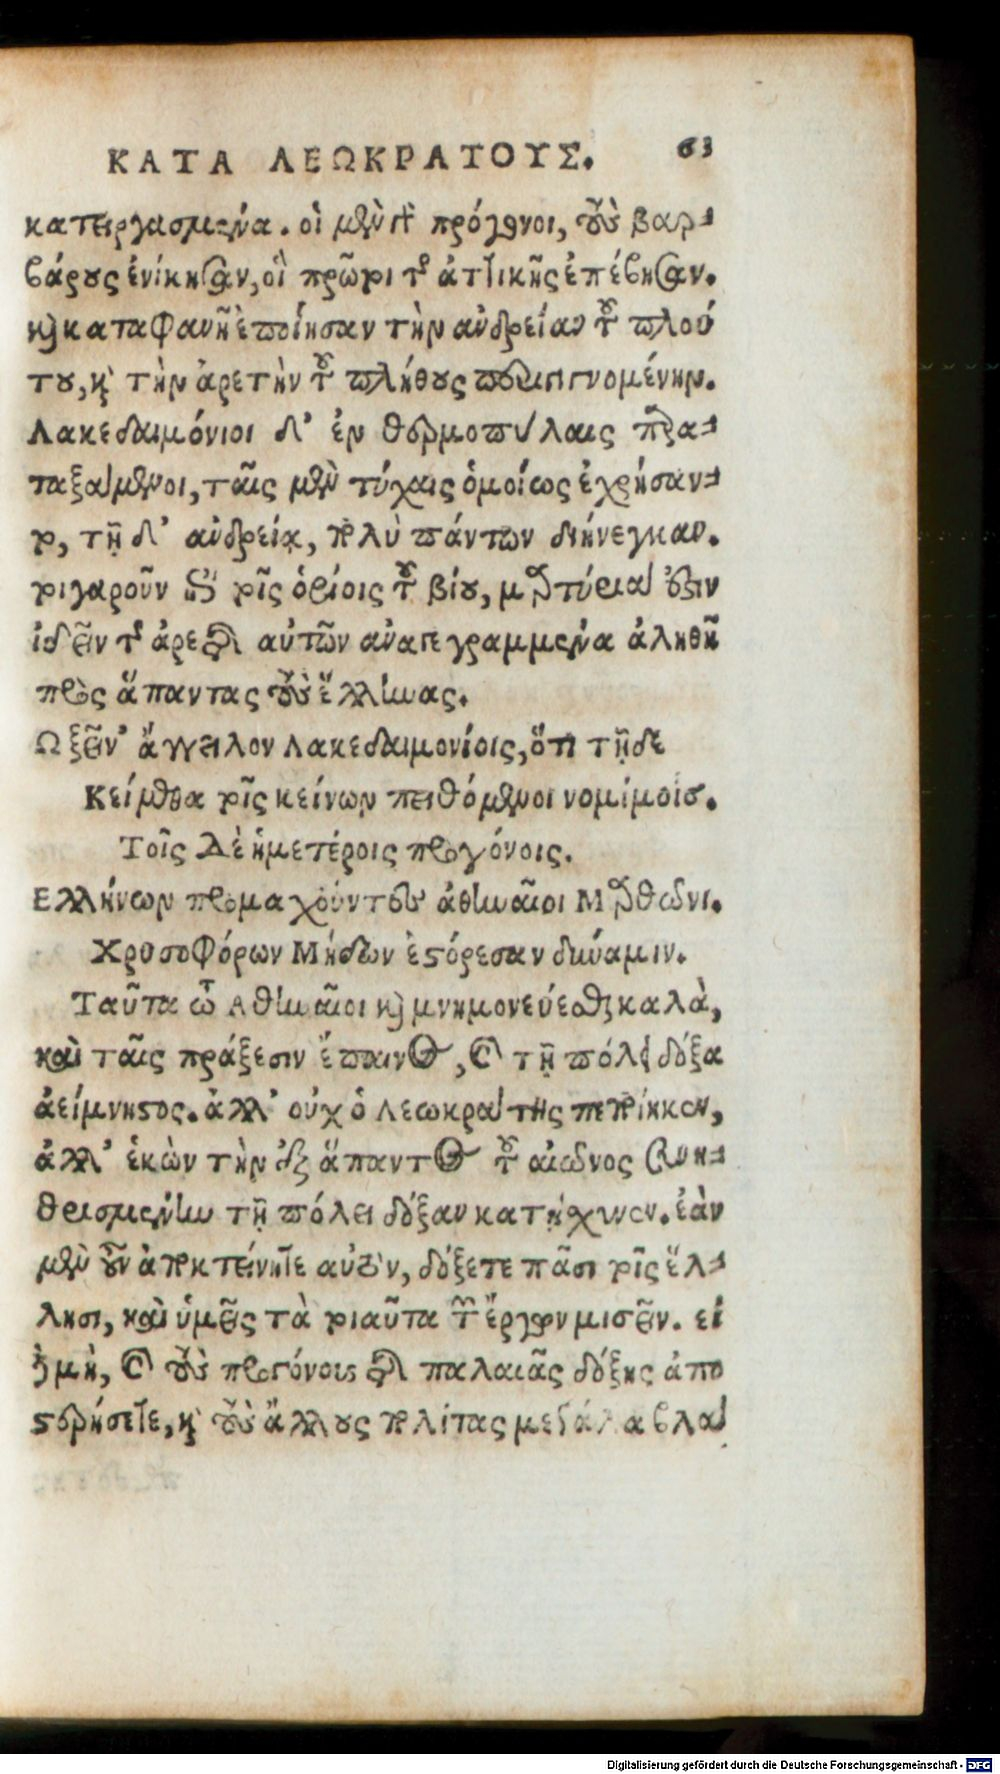 ΚΑΤΑ ΛΕΩΚΡΑΤΟΥΣ. 63
κατειργασμένα. οἱ μὲν γὰρ πρόγονοι, τοὺς βαρ-
βάρους ἐνίκησαν, οἳ πρῶτοι τῆς ἀττικῆς ἐπέβησαν.
καὶ καταφανῆ ἐποίησαν τὴν ἀνδρείαν τοῦ πλού
του, καὶ τὴν ἀρετὴν τοῦ πλήθους περιγιγνομένην.
Λακεδαιμόνιοι δ' ἐν θερμοπύλαις παρα-
ταξάμενοι, ταῖς μὲν τύχαις ὁμοίως ἐχρήσαν-
το, τῇ δ' ἀνδρείᾳ, πολὺ πάντων διήνεγκαν.
τοιγαροῦν ἐπὶ τοῖς ὁρίοις τοῦ βίου, μαρτύρια ἔστιν
ἰδεῖν τῆς ἀρετῆς αὐτῶν ἀναγεγραμμένα ἀληθῆ
πρὸς ἅπαντας τοὺς ἕλληνας.
Ω ξεῖν' ἄγγειλον Λακεδαιμονίοις, ὅτι τῇδε
Κείμεθα τοῖς κείνων πειθόμενοι νομίμοις.
Τοῖς Δὲ ἡμετέροις προγόνοις.
Ελλήνων προμαχοῦντες ἀθηναῖοι Μαραθῶνι.
Χρυσοφόρων Μήδων ἐστόρεσαν δύναμιν.
Ταῦτα ὦ Αθηναῖοι καὶ μνημονεύεσθαι καλὰ,
καὶ ταῖς πράξεσιν ἔπαινος, καὶ τῇ πόλει δόξα
ἀείμνηστος. ἀλλ' οὐχ ὁ Λεωκράτης πεποίηκεν,
ἀλλ' ἑκὼν τὴν ἐξ ἅπαντος τοῦ αἰῶνος συνη-
θροισμένην τῇ πόλει δόξαν κατῄσχυνεν. ἐὰν
μὲν οὖν ἀποκτείνητε αὐτὸν, δόξετε πᾶσι τοῖς ἕλ-
λησι, καὶ ὑμεῖς τὰ τοιαῦτα τῶν ἔργων μισεῖν. εἰ
δὲ μὴ, καὶ τοὺς προγόνους τῆς παλαιᾶς δόξης ἀπο
στερήσετε, καὶ τοὺς ἄλλους πολίτας μεγάλα βλά
Digitalisierung gefördert durch die Deutsche Forschungsgemeinschaft - DFG